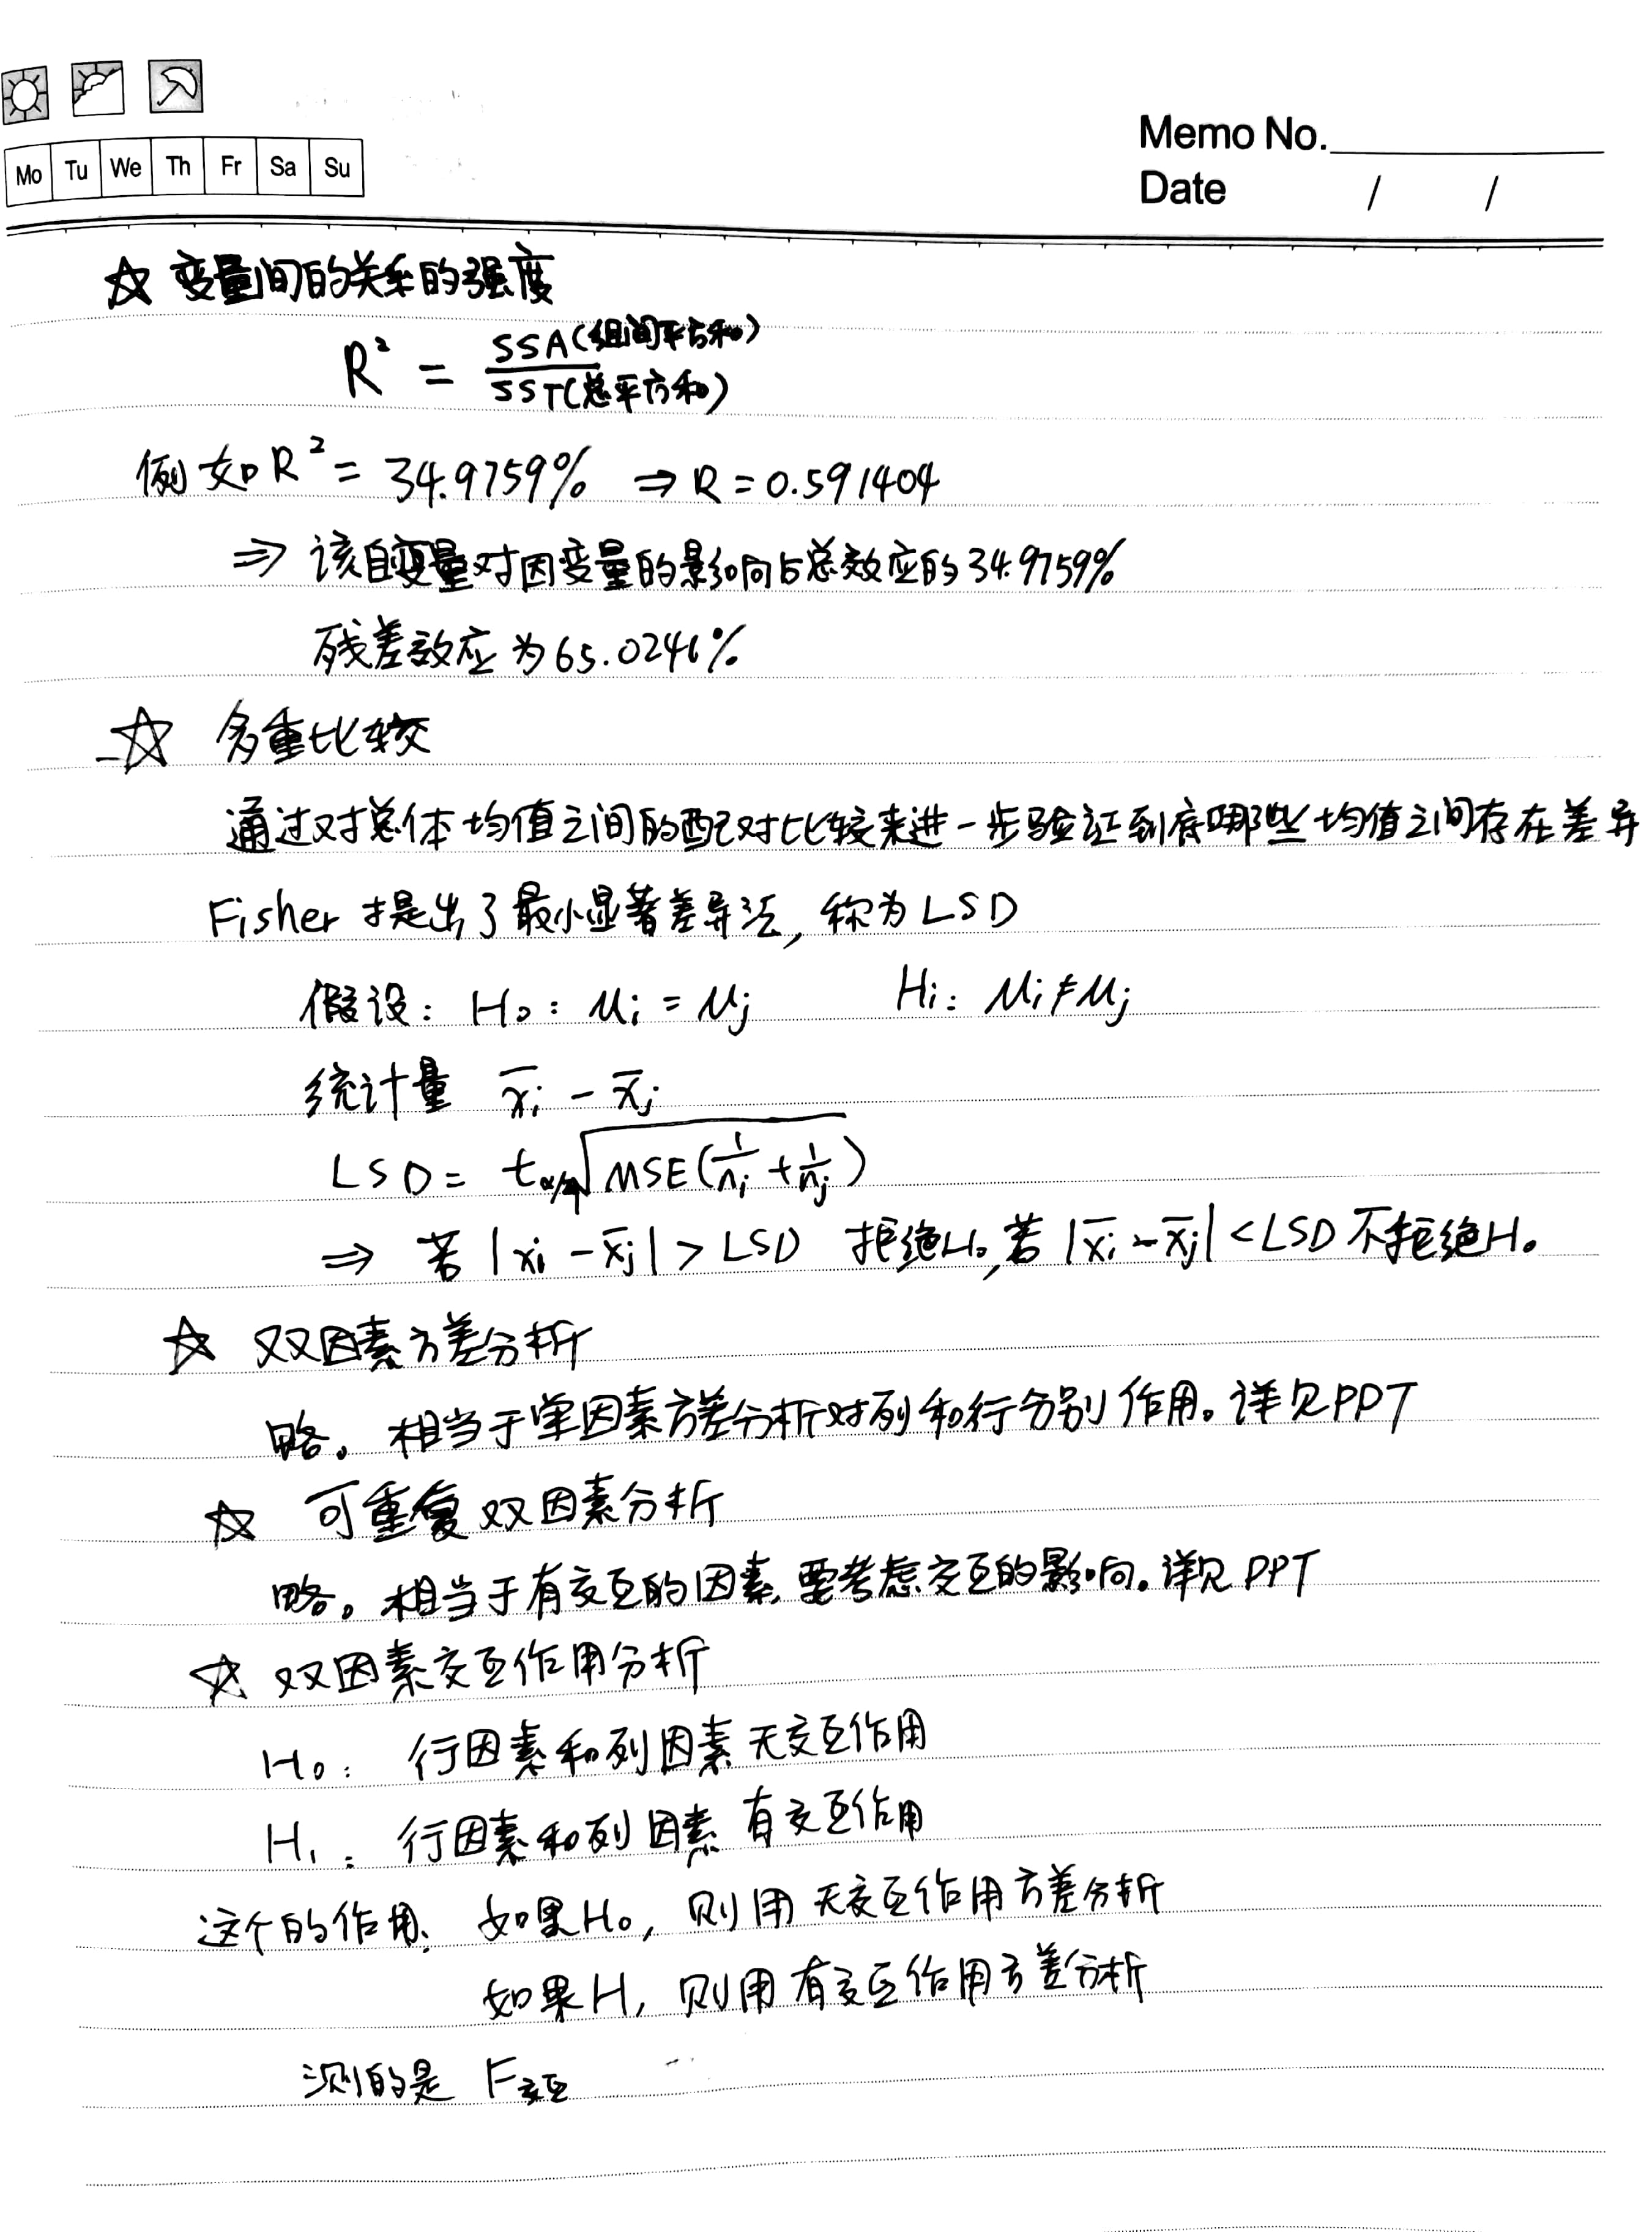 Mo Tu We Th Fr Sa Su
Memo No.
Date / /
☆ 变量间的关系的强度
R² = SSA(组间平方和) / SST(总平方和)
例如 R² = 34.9759% ⇒ R = 0.591404
⇒ 该自变量对因变量的影响占总效应的34.9759%
残差效应为65.0241%
☆ 多重比较
通过对总体均值之间的配对比较来进一步验证到底哪些均值之间存在差异
Fisher 提出了最小显著差异法, 称为LSD
假设: H₀: μi = μj H₁: μi ≠ μj
统计量 x̄i - x̄j
LSD = tα/₂ √MSE(1/ni + 1/nj)
⇒ 若 |xi - x̄j| > LSD 拒绝H₀, 若 |x̄i - x̄j| < LSD 不拒绝H₀
☆ 双因素方差分析
略。相当于单因素方差分析对列和行分别作用。详见PPT
☆ 可重复双因素分析
略。相当于有交互的因素, 要考虑交互的影响。详见PPT
☆ 双因素交互作用分析
H₀: 行因素和列因素无交互作用
H₁: 行因素和列因素有交互作用
这个的作用, 如果H₀, 则用无交互作用方差分析
如果H₁ 则用有交互作用方差分析
测的是 F交互